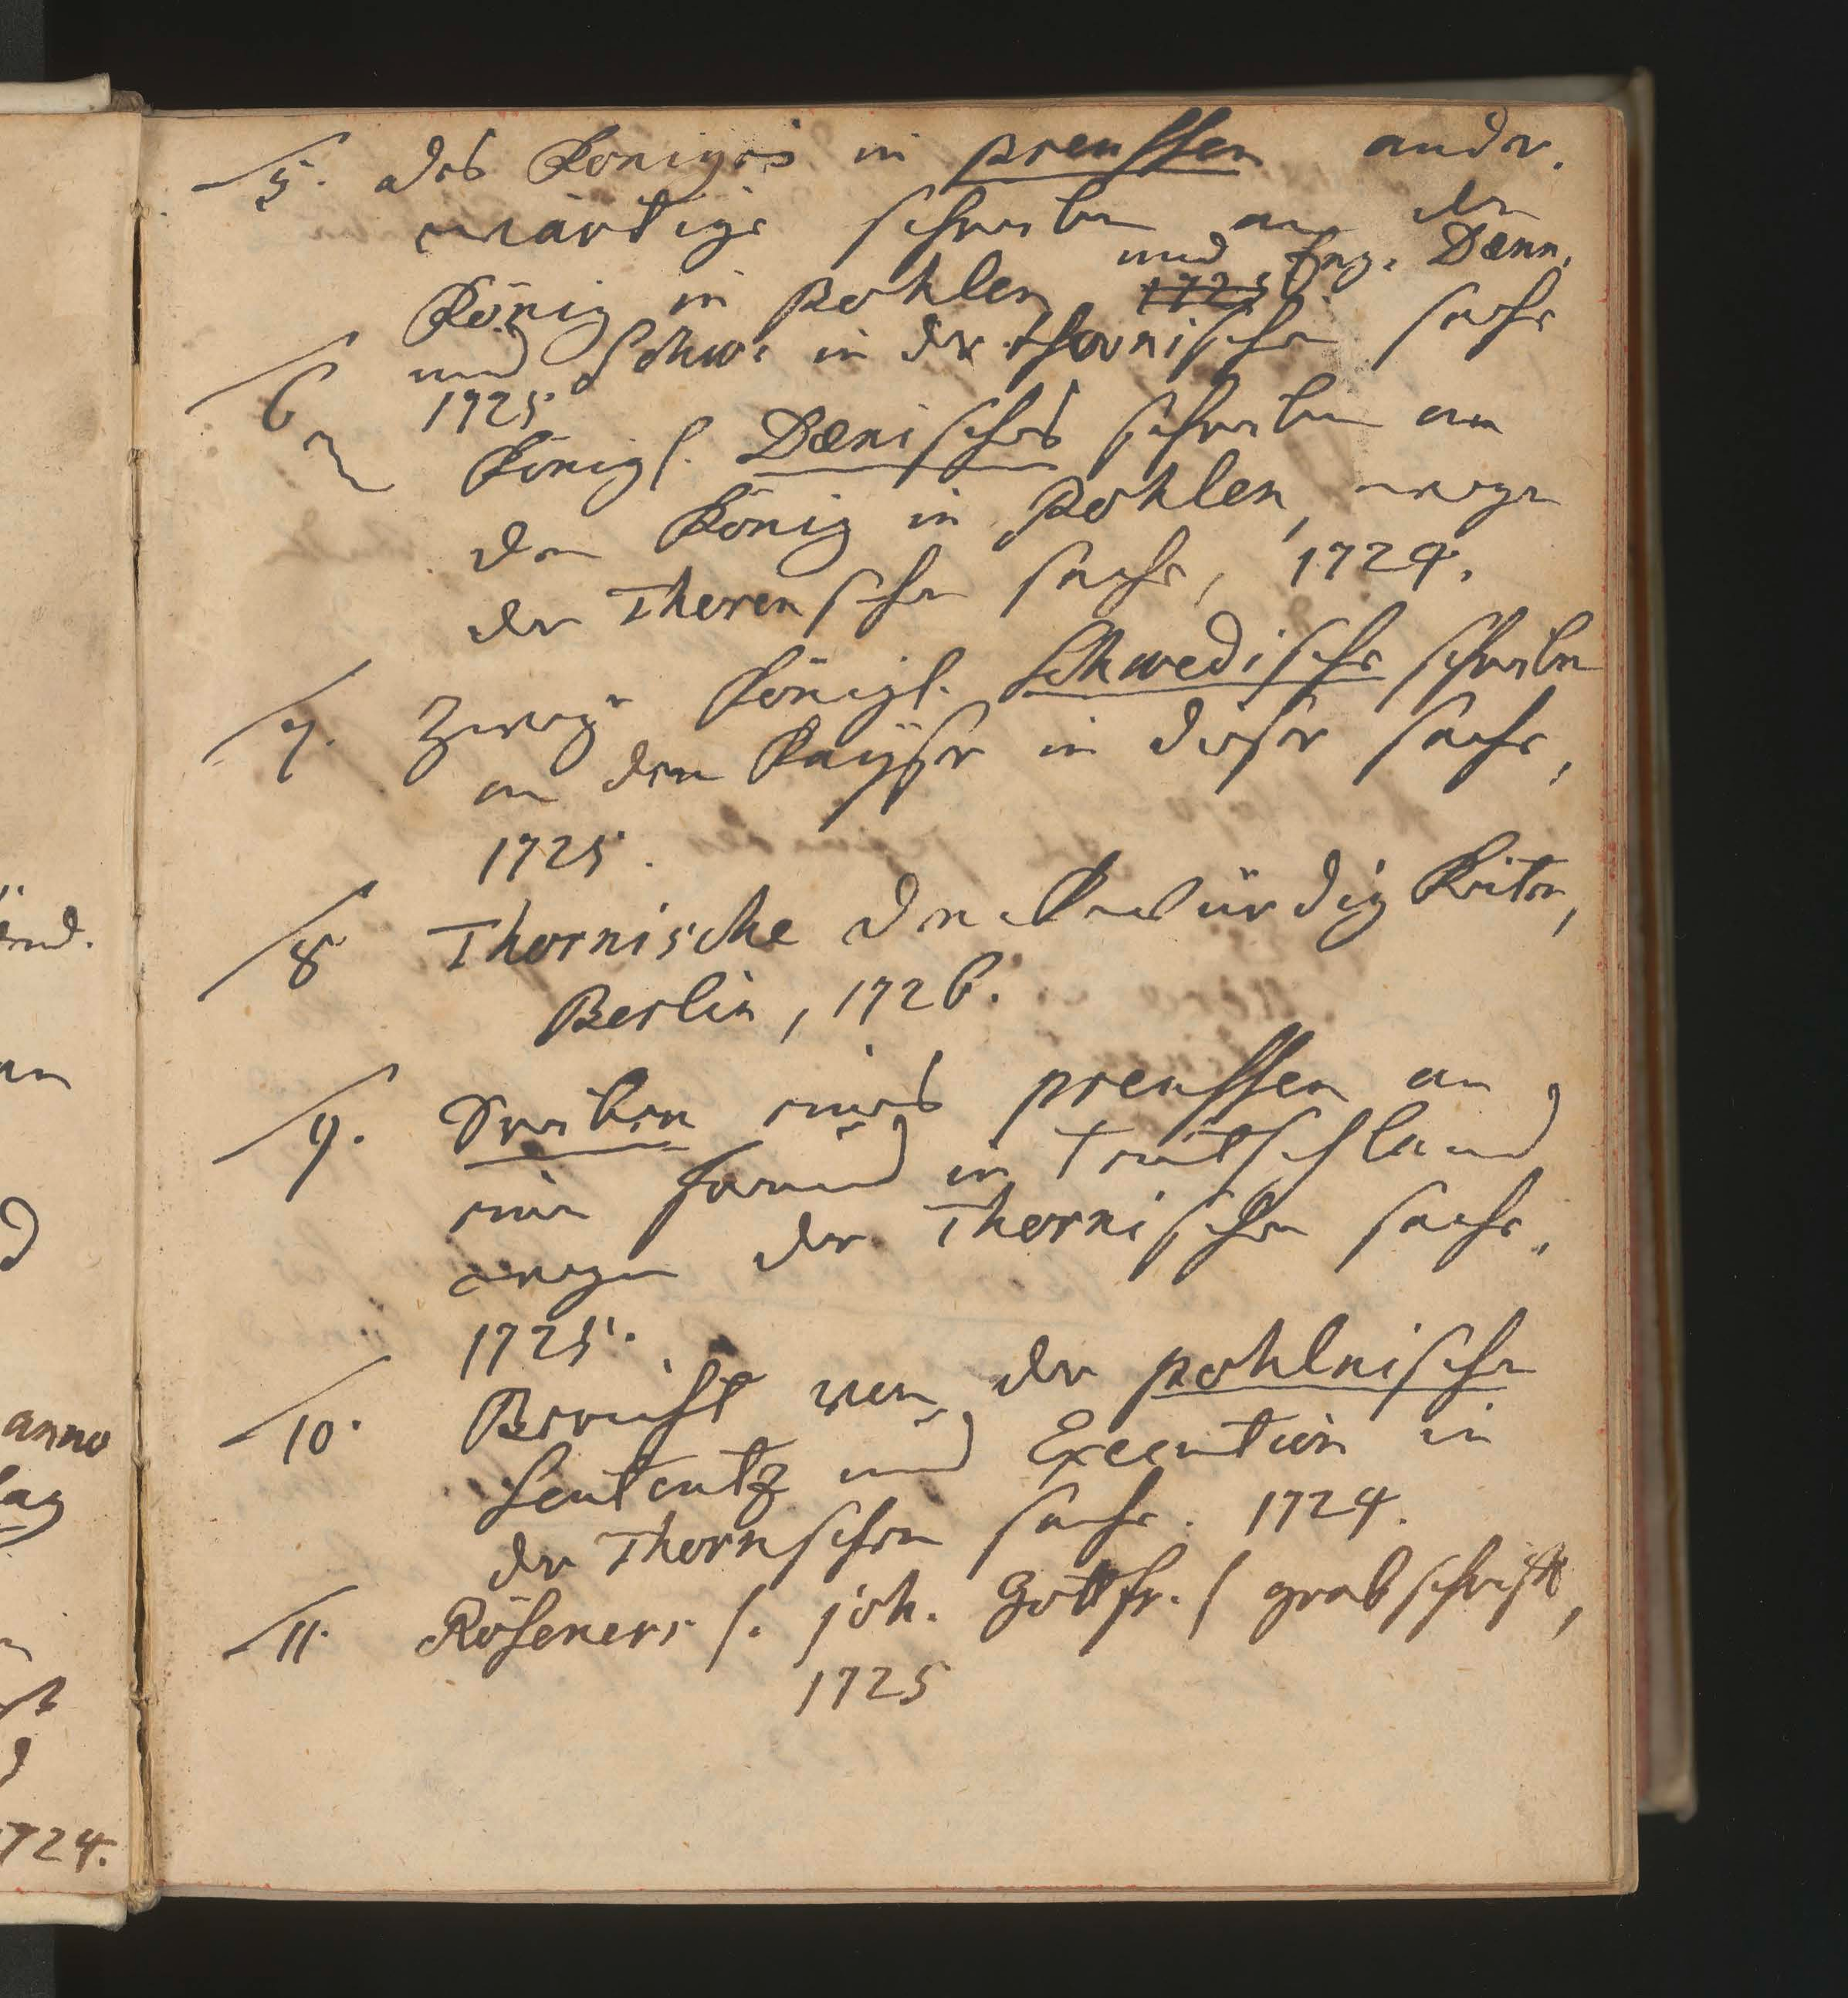 5. des Königes in Preussen ander-
wärtige schreiben an den
König in Pohlen ~~1725~~ und Eng. Dænn.
und Schw. in der Thornischen sache
1725
6 Königl. Dænisches schreiben an
den König in Pohlen, wegen
der Thorenschen sache, 1724.
7. Zweye Königl. Schwedische schreiben
an den Kayser in dieser sache,
1725.
8 Thornische Denckwürdigkeiten,
Berlin, 1726.
9. Sreiben eines Preussen an
einen Freund in Teutschland
wegen der Thornischen sache.
1725.
10. Bericht von der pohlnischen
Sententz und Execution in
der Thornschen sache. 1724.
11. Röseners (. joh. Gottfr. ( grabschrifft,
1725
anno
1724.